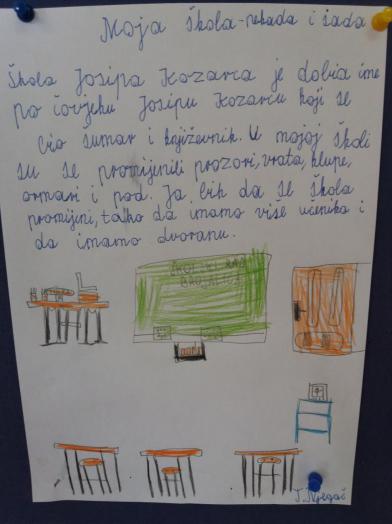 Moja škola-nekada i sada
Škola Josipa Kozarca je dobila ime
po čovjeku Josipu Kozarcu koji je
bio šumar i književnik. U mojoj školi
su se promijenili prozori, vrata, klupe,
ormari i pod. Ja bih da se škola
promijeni, tako da imamo više učenika i
da imamo dvoranu.
T. Njegač